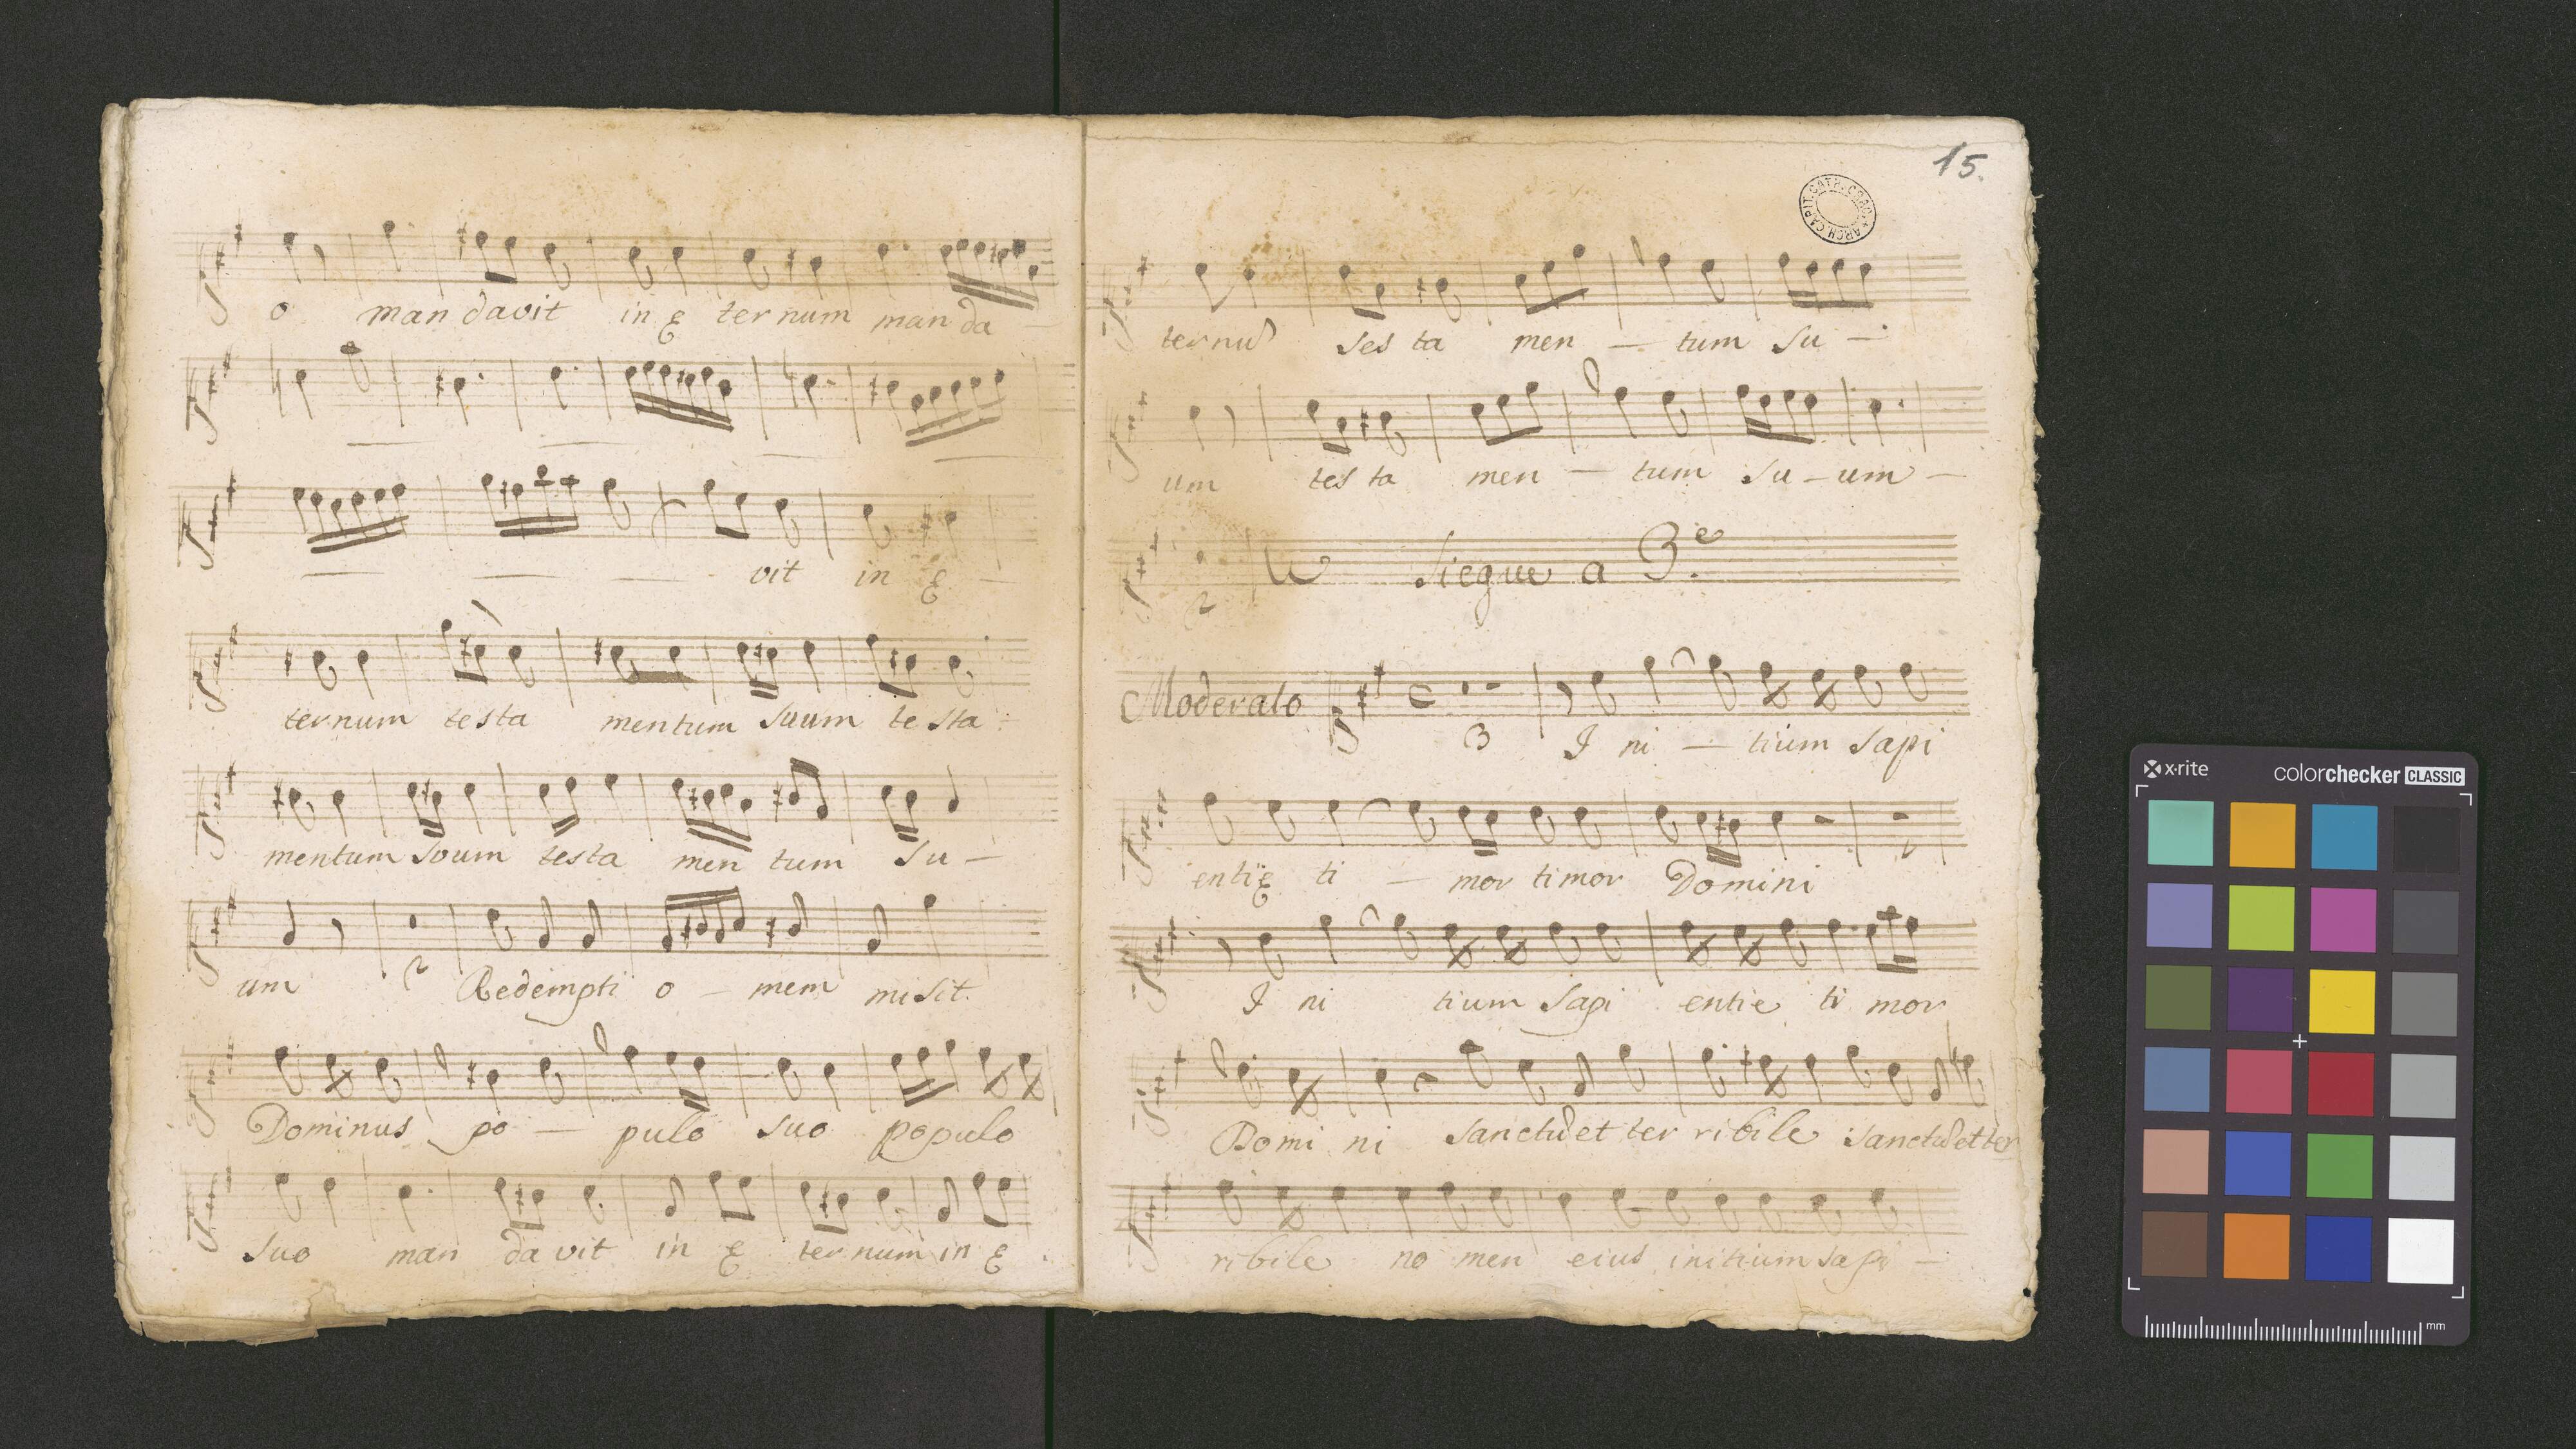 o man davit in ę ter num man da —
vit in ę —
ter num te sta mentum suum te sta
mentum suum testa men tum su —
um 2 Redempti o — mem misit
Dominus po — pulo suo populo
suo man da vit in ę ter num in ę
15.
ARCH. CAPIT. CATH. CRAC.
ternũ tes ta men — tum su —
um tes ta men — tum su — um —
2 Siegue a 3.e
Moderato 3 I ni — tium sapi
entię ti — mor timor Domini
I ni tium sapi entie ti mor
Domi ni sanctũ et ter ribile sanctũ et ter
ribile no men eius initium sapi —
x·rite
colorchecker CLASSIC
mm